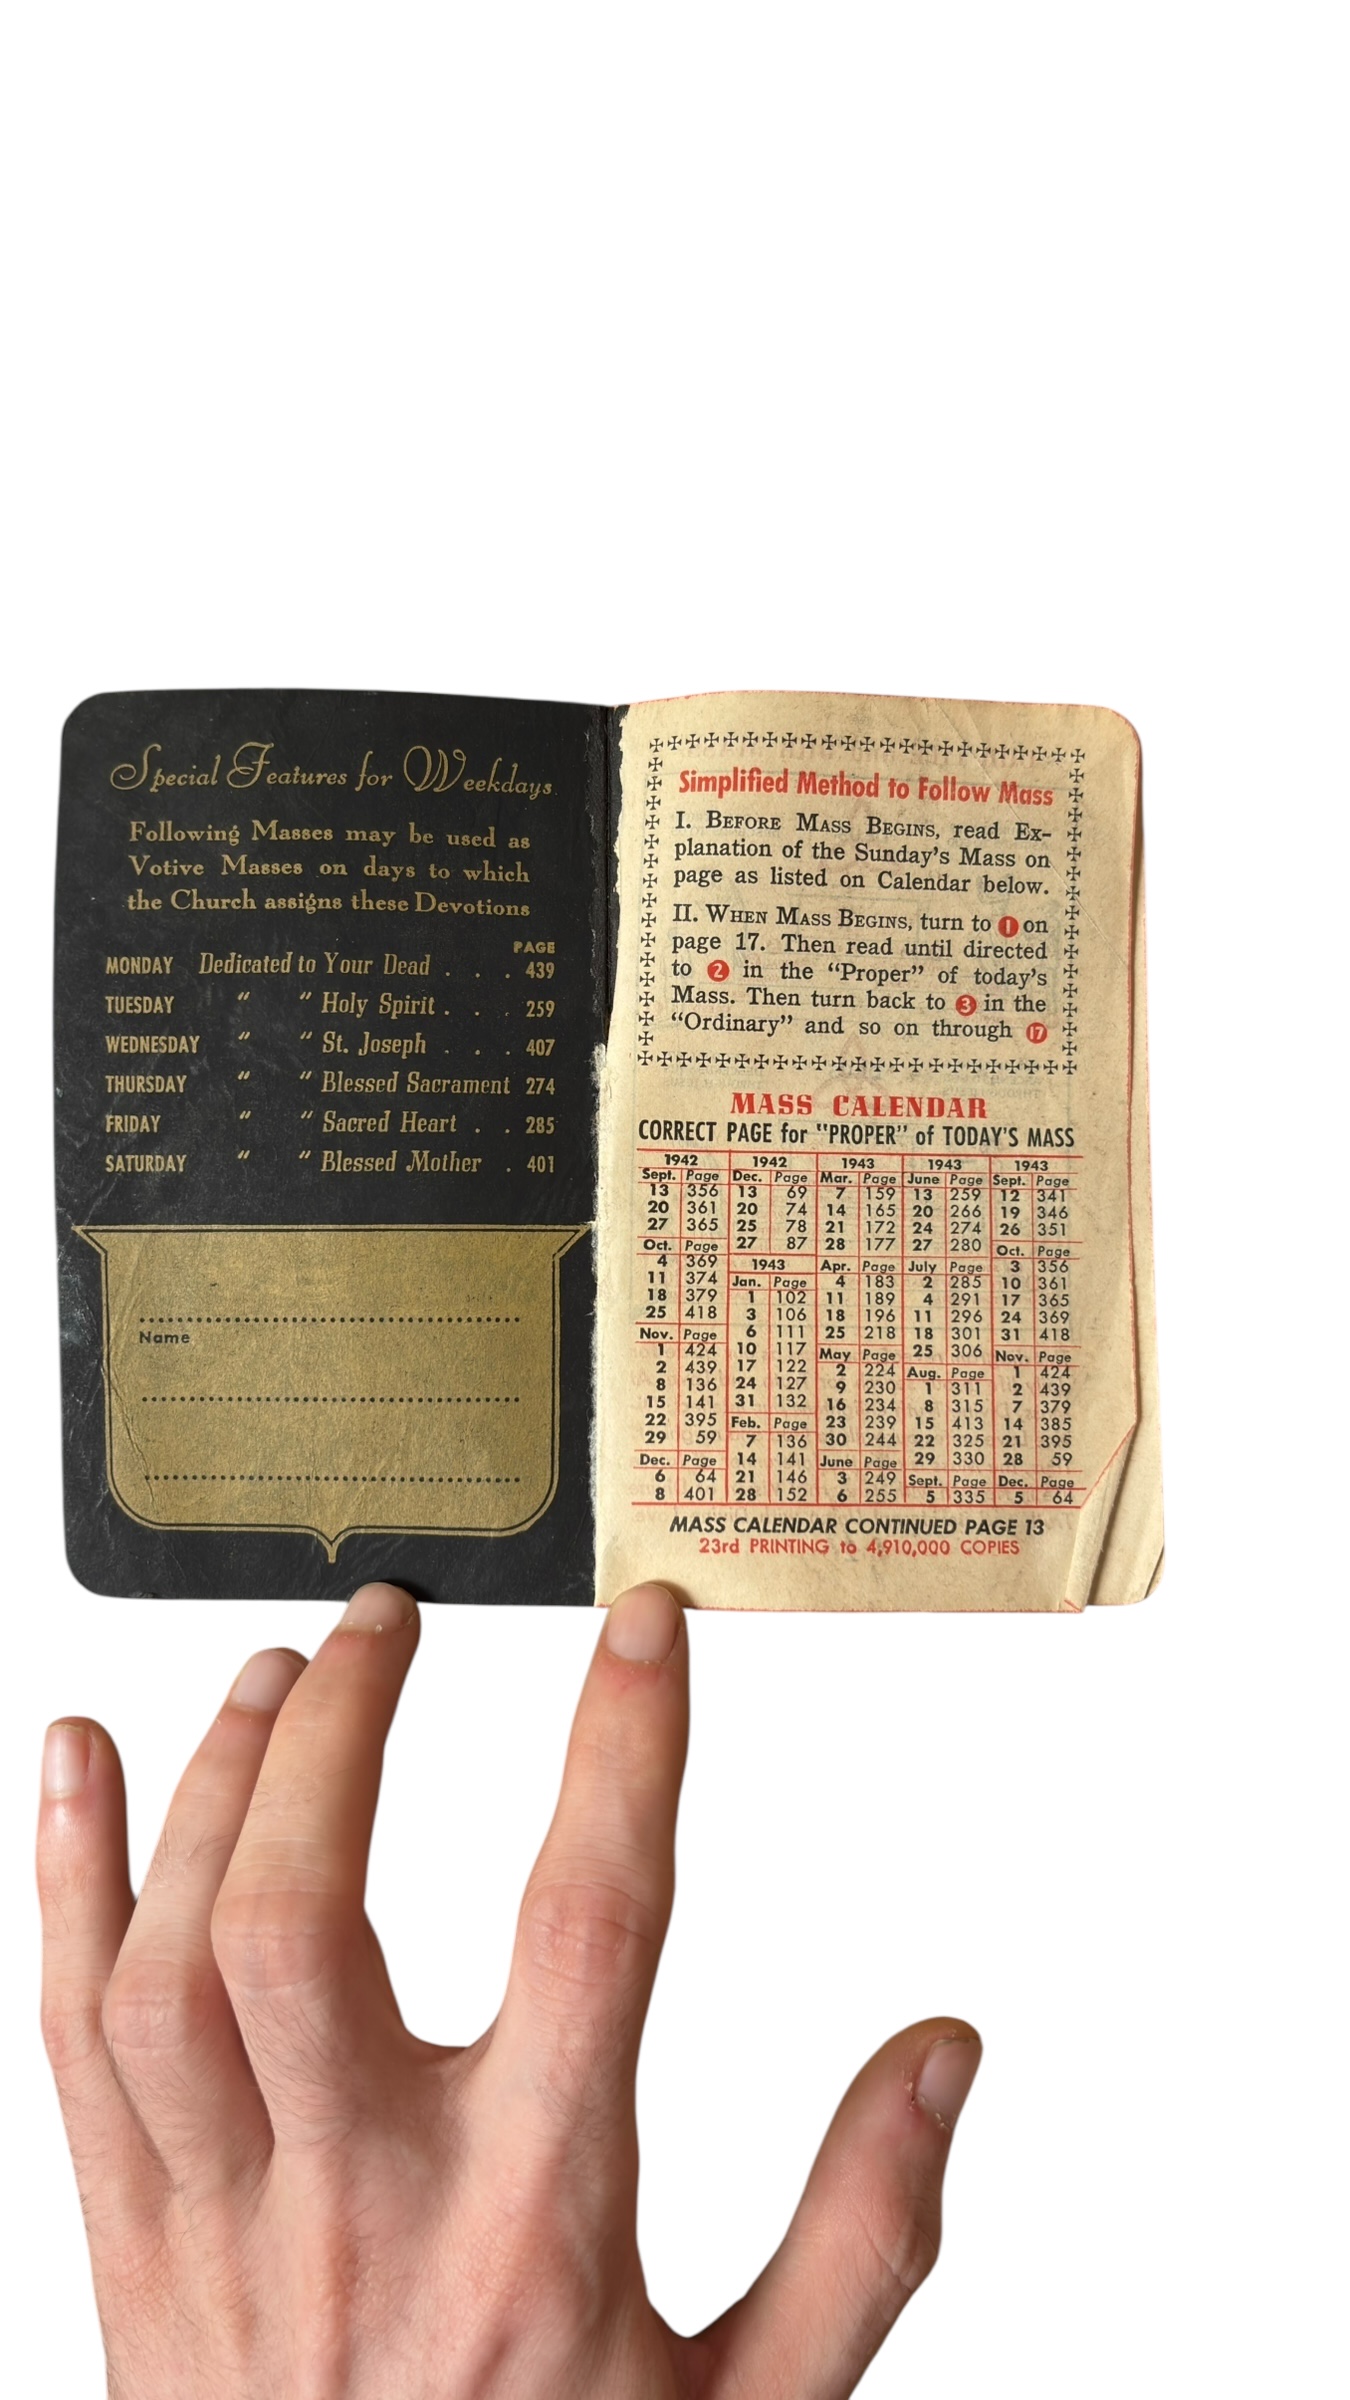 Special Features for Weekdays
Following Masses may be used as
Votive Masses on days to which
the Church assigns these Devotions
PAGE
MONDAY Dedicated to Your Dead . . . 439
TUESDAY " " Holy Spirit . . . 259
WEDNESDAY " " St. Joseph . . . 407
THURSDAY " " Blessed Sacrament 274
FRIDAY " " Sacred Heart . . 285
SATURDAY " " Blessed Mother . 401
Name
Simplified Method to Follow Mass
I. BEFORE MASS BEGINS, read Ex-
planation of the Sunday's Mass on
page as listed on Calendar below.
II. WHEN MASS BEGINS, turn to 1 on
page 17. Then read until directed
to 2 in the "Proper" of today's
Mass. Then turn back to 3 in the
"Ordinary" and so on through 17
MASS CALENDAR
CORRECT PAGE for "PROPER" of TODAY'S MASS
1942
Sept. Page
13 356
20 361
27 365
Oct. Page
4 369
11 374
18 379
25 418
Nov. Page
1 424
2 439
8 136
15 141
22 395
29 59
Dec. Page
6 64
8 401
1942
Dec. Page
13 69
20 74
25 78
27 87
1943
Jan. Page
1 102
3 106
6 111
10 117
17 122
24 127
31 132
Feb. Page
7 136
14 141
21 146
28 152
1943
Mar. Page
7 159
14 165
21 172
28 177
Apr. Page
4 183
11 189
18 196
25 218
May Page
2 224
9 230
16 234
23 239
30 244
June Page
3 249
6 255
1943
June Page
13 259
20 266
24 274
27 280
July Page
2 285
4 291
11 296
18 301
25 306
Aug. Page
1 311
8 315
15 413
22 325
29 330
Sept. Page
5 335
1943
Sept. Page
12 341
19 346
26 351
Oct. Page
3 356
10 361
17 365
24 369
31 418
Nov. Page
1 424
2 439
7 379
14 385
21 395
28 59
Dec. Page
5 64
MASS CALENDAR CONTINUED PAGE 13
23rd PRINTING to 4,910,000 COPIES